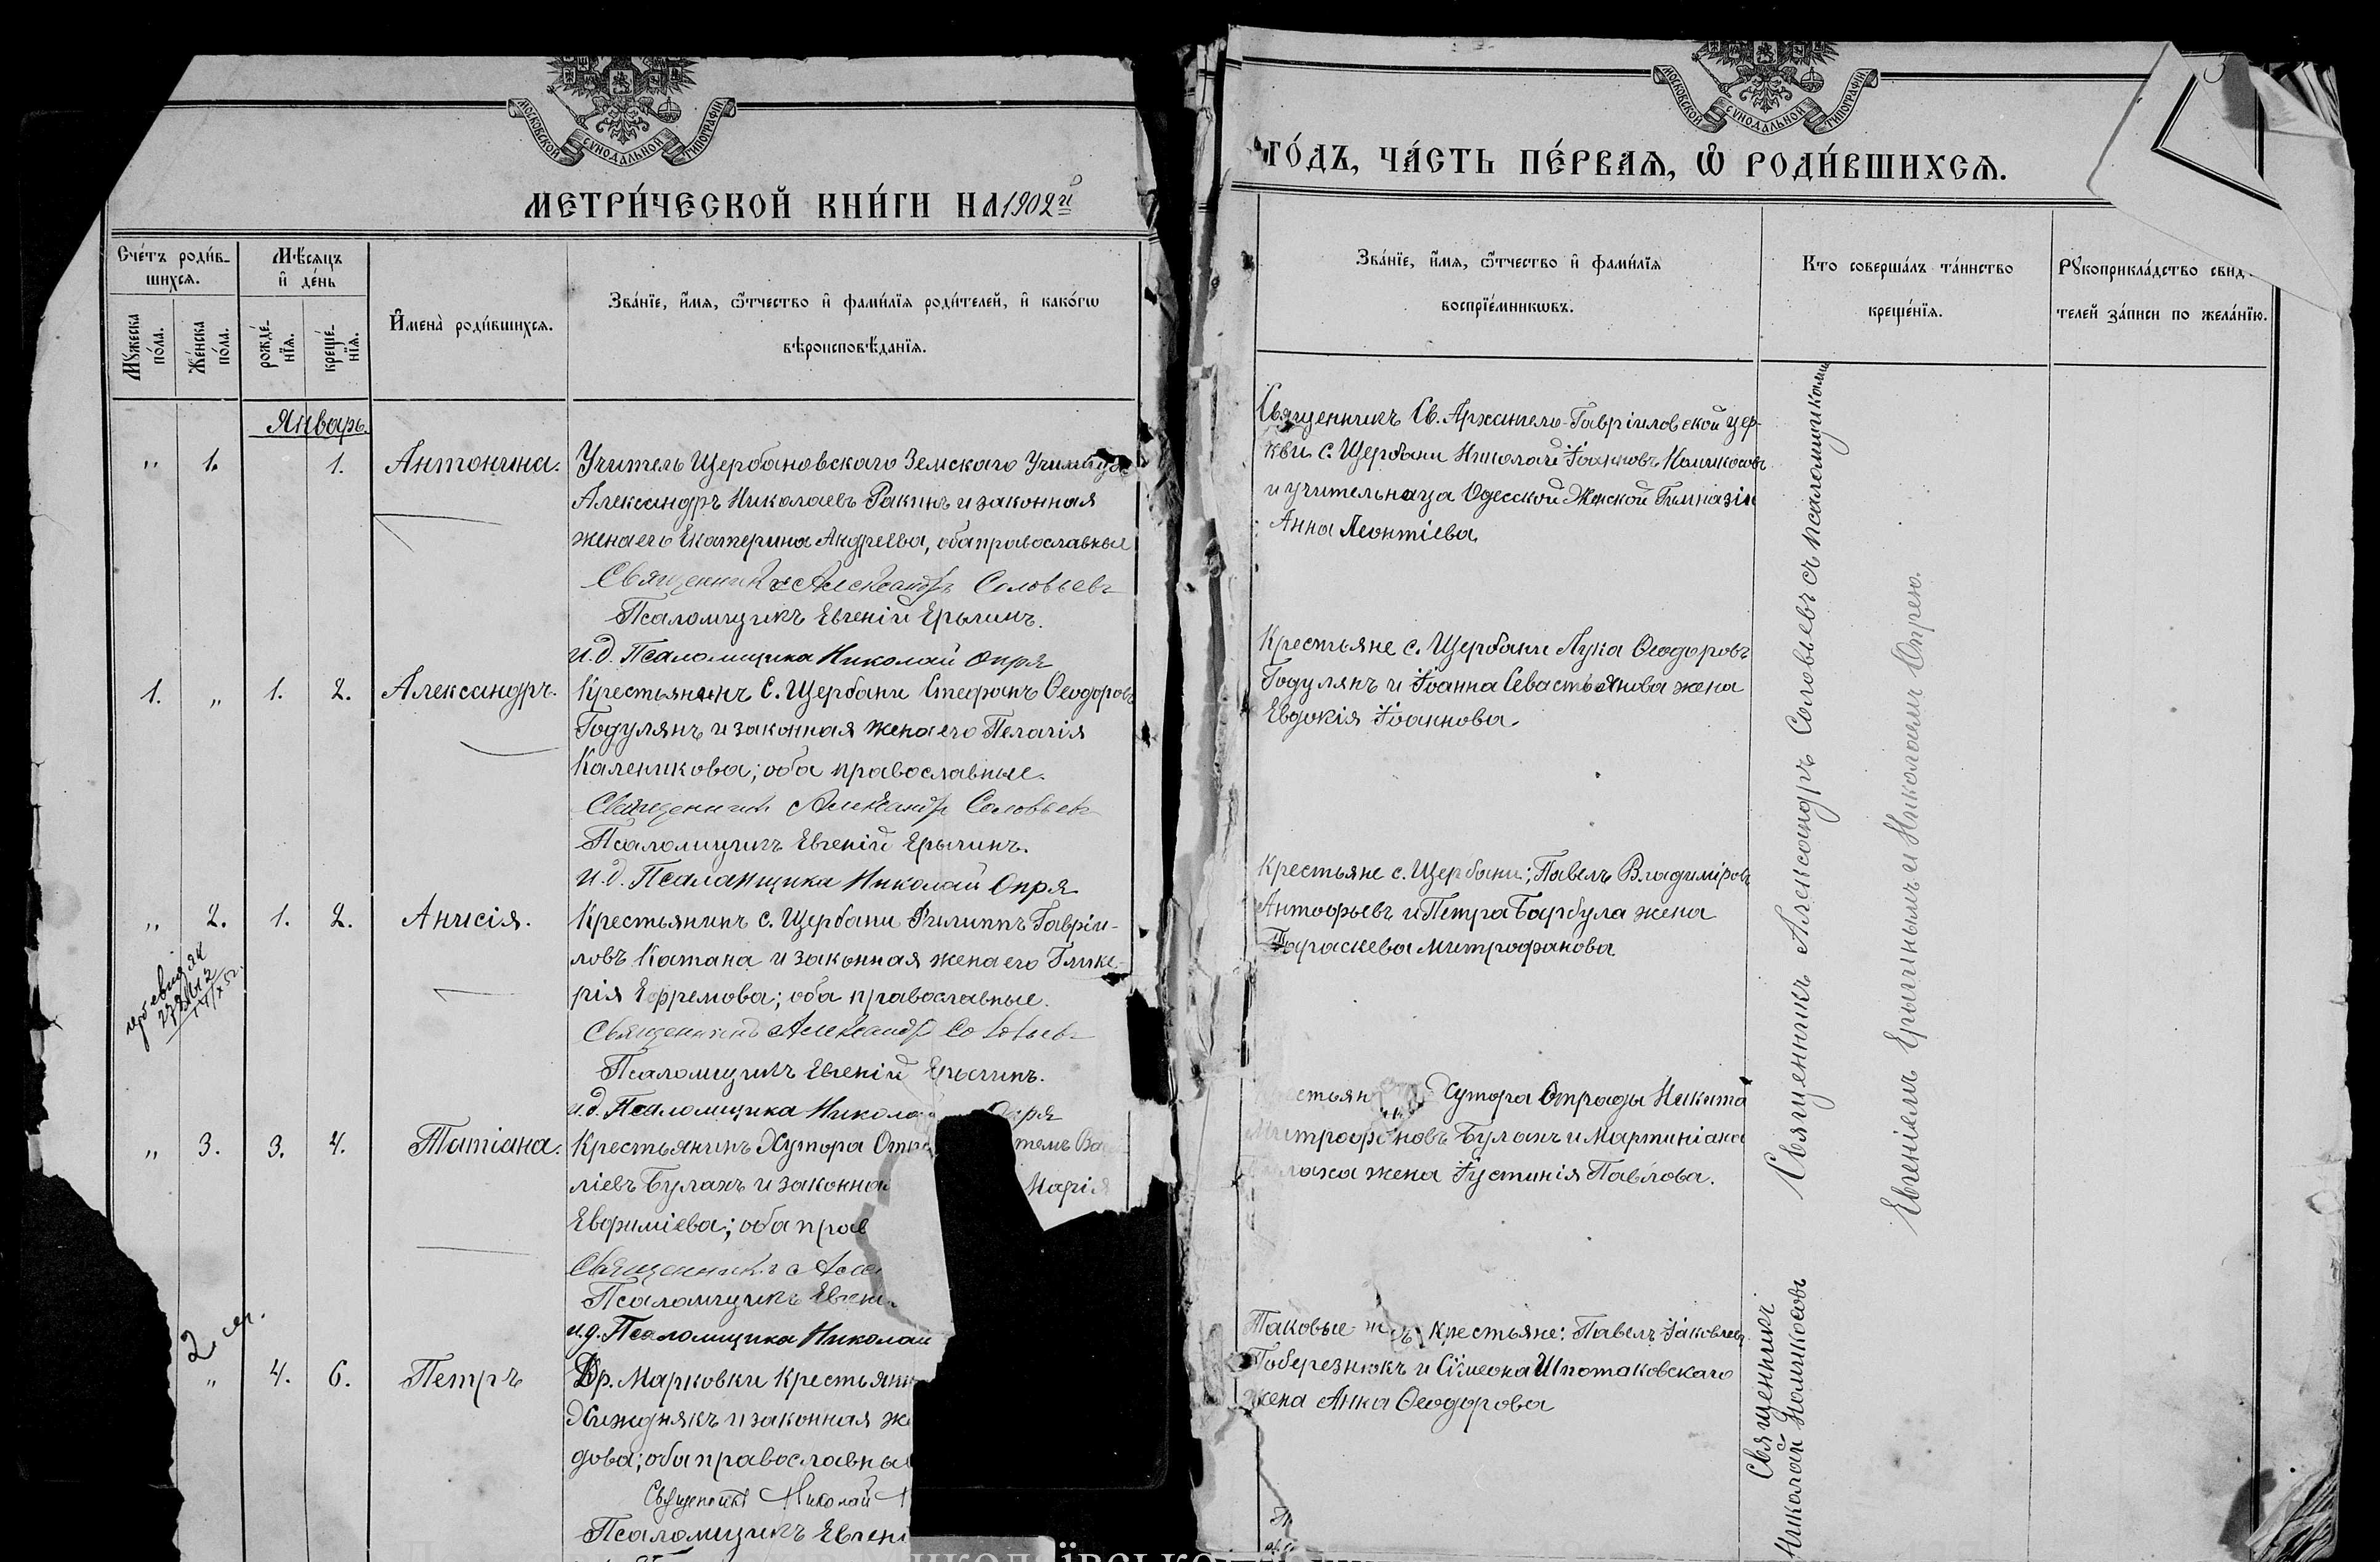 МОСКОВСКОЙ СѴНОДАЛЬНОЙ ТИПОГРАФІИ
МЕТРИ́ЧЕСКОЙ КНИ́ГИ НА 1902й
Сче́тъ роди́в-
шихсѧ.
Мѣ́сѧцъ
и҆ де́нь
Мꙋ́жеска
по́ла.
Же́нска
по́ла.
рожде́-
нїѧ.
креще́-
нїѧ.
И҆мена̀ роди́вшихсѧ.
Зва́нїе, и҆́мѧ, ѻ҆́тчество и҆ фами́лїѧ роди́телей, и҆ како́гѡ
вѣроисповѣ́данїѧ.
Январь.
" 1. 1. Антонина. Учитель Щербановскаго Земскаго Училища
Александръ Николаевъ Ракинъ и законная
жена его Екатерина Андреева, оба православные
Священникъ Александръ Соловьевъ
Псаломщикъ Евгеній Ерыгинъ.
и.д. Псаломщика Николай Опря
1. " 1. 2. Александръ. Крестьянинъ с. Щербани Стефанъ Ѳеодоровъ
Годулянъ и законная жена его Пелагія
Каленикова; оба православные.
Священникъ Александръ Соловьевъ
Псаломщикъ Евгеній Ерыгинъ.
и.д. Псаломщика Николай Опря
" 2. 1. 2. Анисія. Крестьянинъ с. Щербани Филиппъ Гавріи-
ловъ Катана и законная жена его Глике-
рія Ефремова; оба православные.
Священникъ Александръ Соловьев
Псаломщикъ Евгеній Ерыгинъ.
и.д. Псаломщика Никола
" 3. 3. 4. Татіана. Крестьянинъ Хутора
ліевъ Булахъ и законная Марія
Евфиміева; оба прав
Священникъ Алек
Псаломщикъ Евгені
и.д. Псаломщика Николай
2
" 4. 6. Петръ Др. Марковки Крестьянин
Хижнякъ и законная же
дова; оба православны
Священникъ Николай
Псаломщикъ Евгені
МОСКОВСКОЙ СѴНОДАЛЬНОЙ ТИПОГРАФІИ
ГО́ДЪ, ЧА́СТЬ ПЕ́РВАѦ, Ѡ҆ РОДИ́ВШИХСѦ.
Зва́нїе, и҆́мѧ, ѻ҆́тчество и҆ фами́лїѧ
воспрїе́мникѡвъ.
Кто соверша́лъ та́инство
креще́нїѧ.
Рꙋкоприкла́дство свид
телей за́писи по жела́нїю.
Священникъ Св. Архангело-Гавріиловской цер-
кви с. Щербани Николай Іоанновъ Номикосовъ
и учительница Одесской Женской Гимназіи
Анна Леонтіева.
Крестьяне с. Щербани Лука Ѳеодоровъ
Годулянъ и Іоанна Севастьянова жена
Евдокія Іоаннова.
Крестьяне с. Щербани; Павелъ Владиміровъ
Антофьевъ и Петра Барбула жена
Параскева Митрофанова.
Хутора Отрады Никита
Митрофановъ Булахъ и Мартиніана
жена Іустинія Павлова.
Таковые крестьяне: Павелъ Іаковлевъ
Поберезнюкъ и Сѵмеона Шпотаковскаго
жена Анна Ѳеодорова
Священникъ Александръ Соловьевъ съ псаломщиками
Евгеніемъ Ерыгинымъ и Николаемъ Опрею.
Священникъ
Николай Номикосовъ